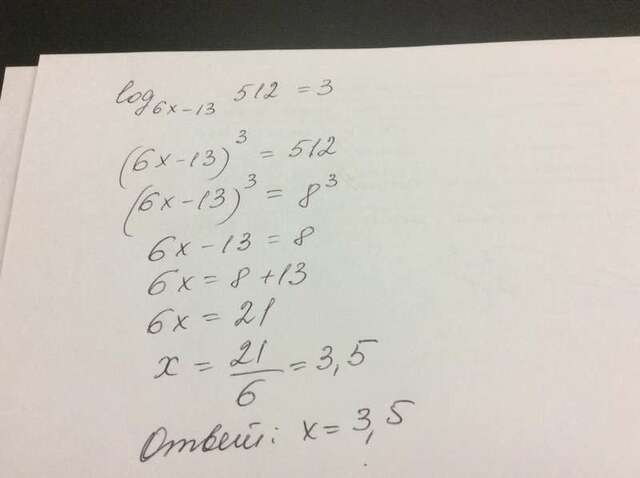 log₆ₓ₋₁₃ 512 = 3
(6x-13)³ = 512
(6x-13)³ = 8³
6x-13 = 8
6x = 8+13
6x = 21
x = 21/6 = 3,5
Ответ: x = 3,5